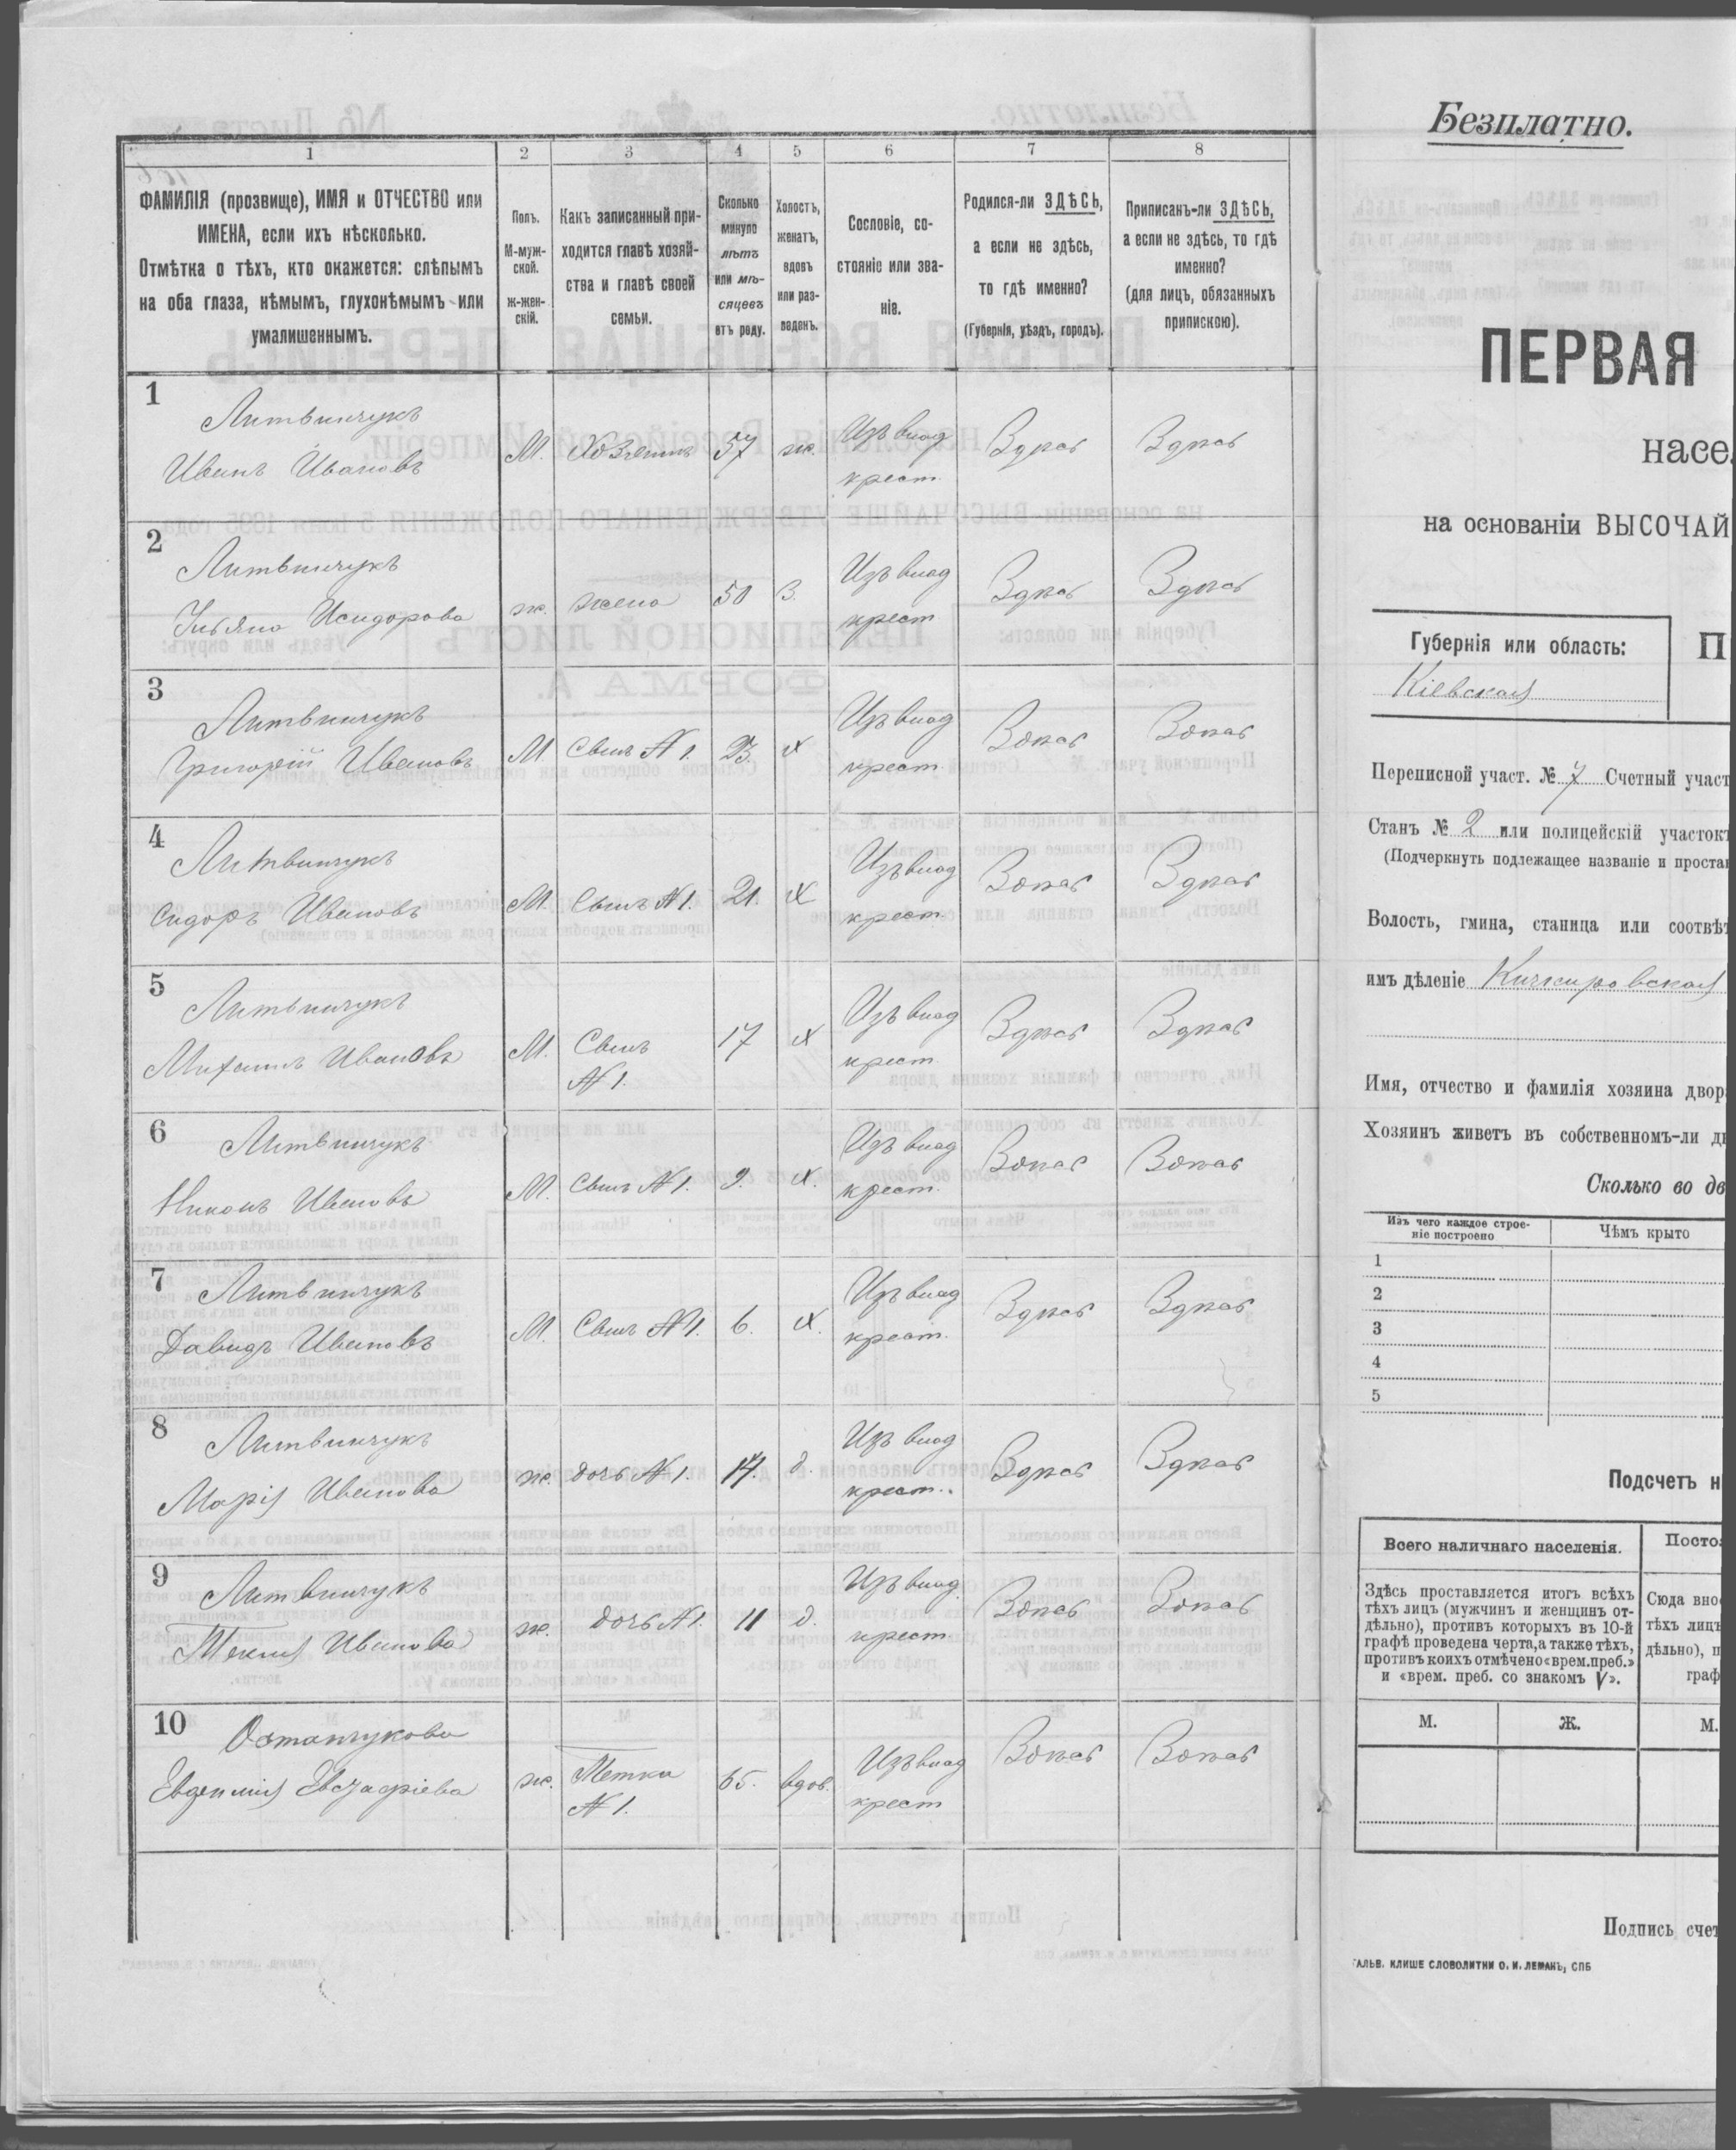 1 2 3 4 5 6 7 8
ФАМИЛІЯ (прозвище), ИМЯ и ОТЧЕСТВО или
ИМЕНА, если ихъ нѣсколько.
Отмѣтка о тѣхъ, кто окажется: слѣпымъ
на оба глаза, нѣмымъ, глухонѣмымъ или
умалишеннымъ.
Полъ.
М-муж-
ской.
ж-жен-
скій.
Какъ записанный при-
ходится главѣ хозяй-
ства и главѣ своей
семьи.
Сколько
минуло
лѣтъ
или мѣ-
сяцевъ
отъ роду.
Холостъ,
женатъ,
вдовъ
или раз-
веденъ.
Сословіе, со-
стояніе или зва-
ніе.
Родился-ли ЗДѢСЬ,
а если не здѣсь,
то гдѣ именно?
(Губернія, уѣздъ, городъ).
Приписанъ-ли ЗДѢСЬ,
а если не здѣсь, то гдѣ
именно?
(для лицъ, обязанныхъ
припискою).
1
Литвинчукъ
Иванъ Ивановъ
М. Хозяинъ 57 ж. Изъ влад крест. Здѣсь Здѣсь
2
Литвинчукъ
Ульяна Исидорова
ж. жена 50 З. Изъ влад крест Здѣсь Здѣсь
3
Литвинчукъ
Григорій Ивановъ
М. Сынъ № 1. 23. х Изъ влад крест. Здѣсь Здѣсь
4
Литвинчукъ
Сидоръ Ивановъ
М. Сынъ № 1. 21. х Изъ влад крест. Здѣсь Здѣсь
5
Литвинчукъ
Михаилъ Ивановъ
М. Сынъ № 1. 17 х Изъ влад крест Здѣсь Здѣсь
6
Литвинчукъ
Никонъ Ивановъ
М. Сынъ № 1. 9. х. Изъ влад крест. Здѣсь Здѣсь
7
Литвинчукъ
Давидъ Ивановъ
М. Сынъ № 1. 6. х. Изъ влад крест. Здѣсь Здѣсь
8
Литвинчукъ
Марія Иванова
ж. дочь № 1. д. Изъ влад крест. Здѣсь Здѣсь
9
Литвинчукъ
Текля Иванова
ж. дочь № 1. 11 д. Изъ влад. крест Здѣсь Здѣсь
10
Остапчукова
Евзафіева
ж. Тетка № 1. 65. вдов. Изъ влад крест Здѣсь Здѣсь
Безплатно.
ПЕРВАЯ
насе
на основаніи ВЫСОЧАЙ
Губернія или область:
Кіевская
П
Переписной участ. № 7 Счетный участ
Станъ № 2 или полицейскій участок
(Подчеркнуть подлежащее названіе и проста
Волость, гмина, станица или соотвѣт
имъ дѣленіе Кичкировская
Имя, отчество и фамилія хозяина двор
Хозяинъ живетъ въ собственномъ-ли д
Сколько во дв
Изъ чего каждое строе-
ніе построено
Чѣмъ крыто
1
2
3
4
5
Подсчетъ н
Всего наличнаго населенія.
Посто
Здѣсь проставляется итогъ всѣхъ
тѣхъ лицъ (мужчинъ и женщинъ от-
дѣльно), противъ которыхъ въ 10-й
графѣ проведена черта, а также тѣхъ,
противъ коихъ отмѣчено «врем. преб.»
и «врем. преб. со знакомъ V».
Сюда вно
тѣхъ лицъ
дѣльно), п
граф
М. Ж. М.
Подпись счет
ГАЛЬВ. КЛИШЕ СЛОВОЛИТНИ О. И. ЛЕМАНЪ, СПБ